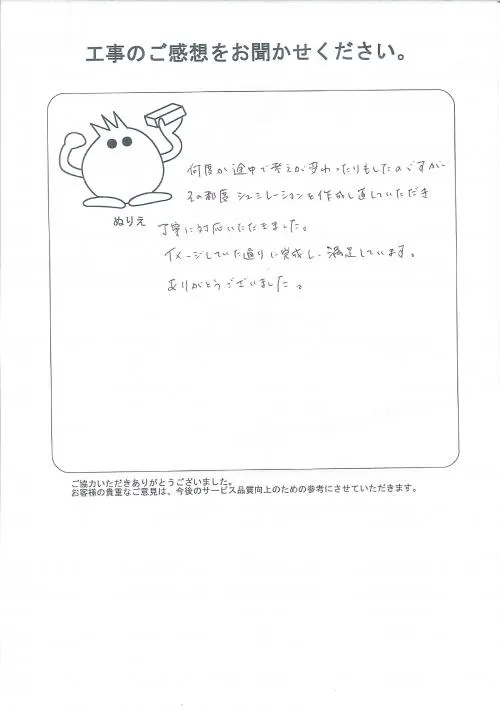 工事のご感想をお聞かせください。
何度か途中で考えが変わったりもしたのですが
その都度シュミレーションを作成し直していただき
ぬりえ
丁寧に対応いただきました。
イメージしていた通りに完成し、満足しています。
ありがとうございました。
ご協力いただきありがとうございました。
お客様の貴重なご意見は、今後のサービス品質向上のための参考にさせていただきます。